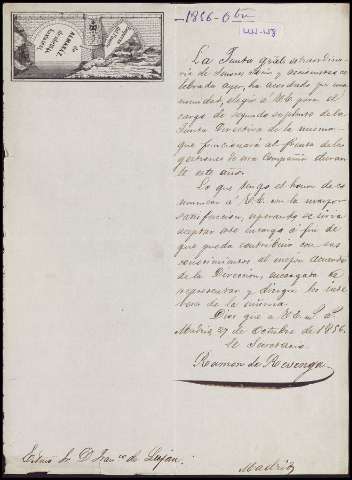 1856-Obre
La Junta gral. extraordina
ria de Señores Socios y accionistas ce
lebrada ayer, ha acordado por una
nimidad, elegir á V.E. para el
cargo de segundo suplente de la
Junta Directiva de la misma
que funcionará al frente de las
gestiones de esa Compañia duran
te este año.
Lo que tengo el honor de co
municar á V.E. con la mayor
satisfaccion, esperando se sirva
aceptar este encargo á fin de
que pueda contribuir con sus
conocimientos al mejor acuerdo
de la Direccion, encargada de
representar y dirigir los inte
reses de la misma.
Dios gue á V.E. m.s a.s
Madrid 27 de Octubre de 1856.
El Secretario
Ramon de Revenga
Exmo. Sr. D. Franco. de Luján.
Madrid